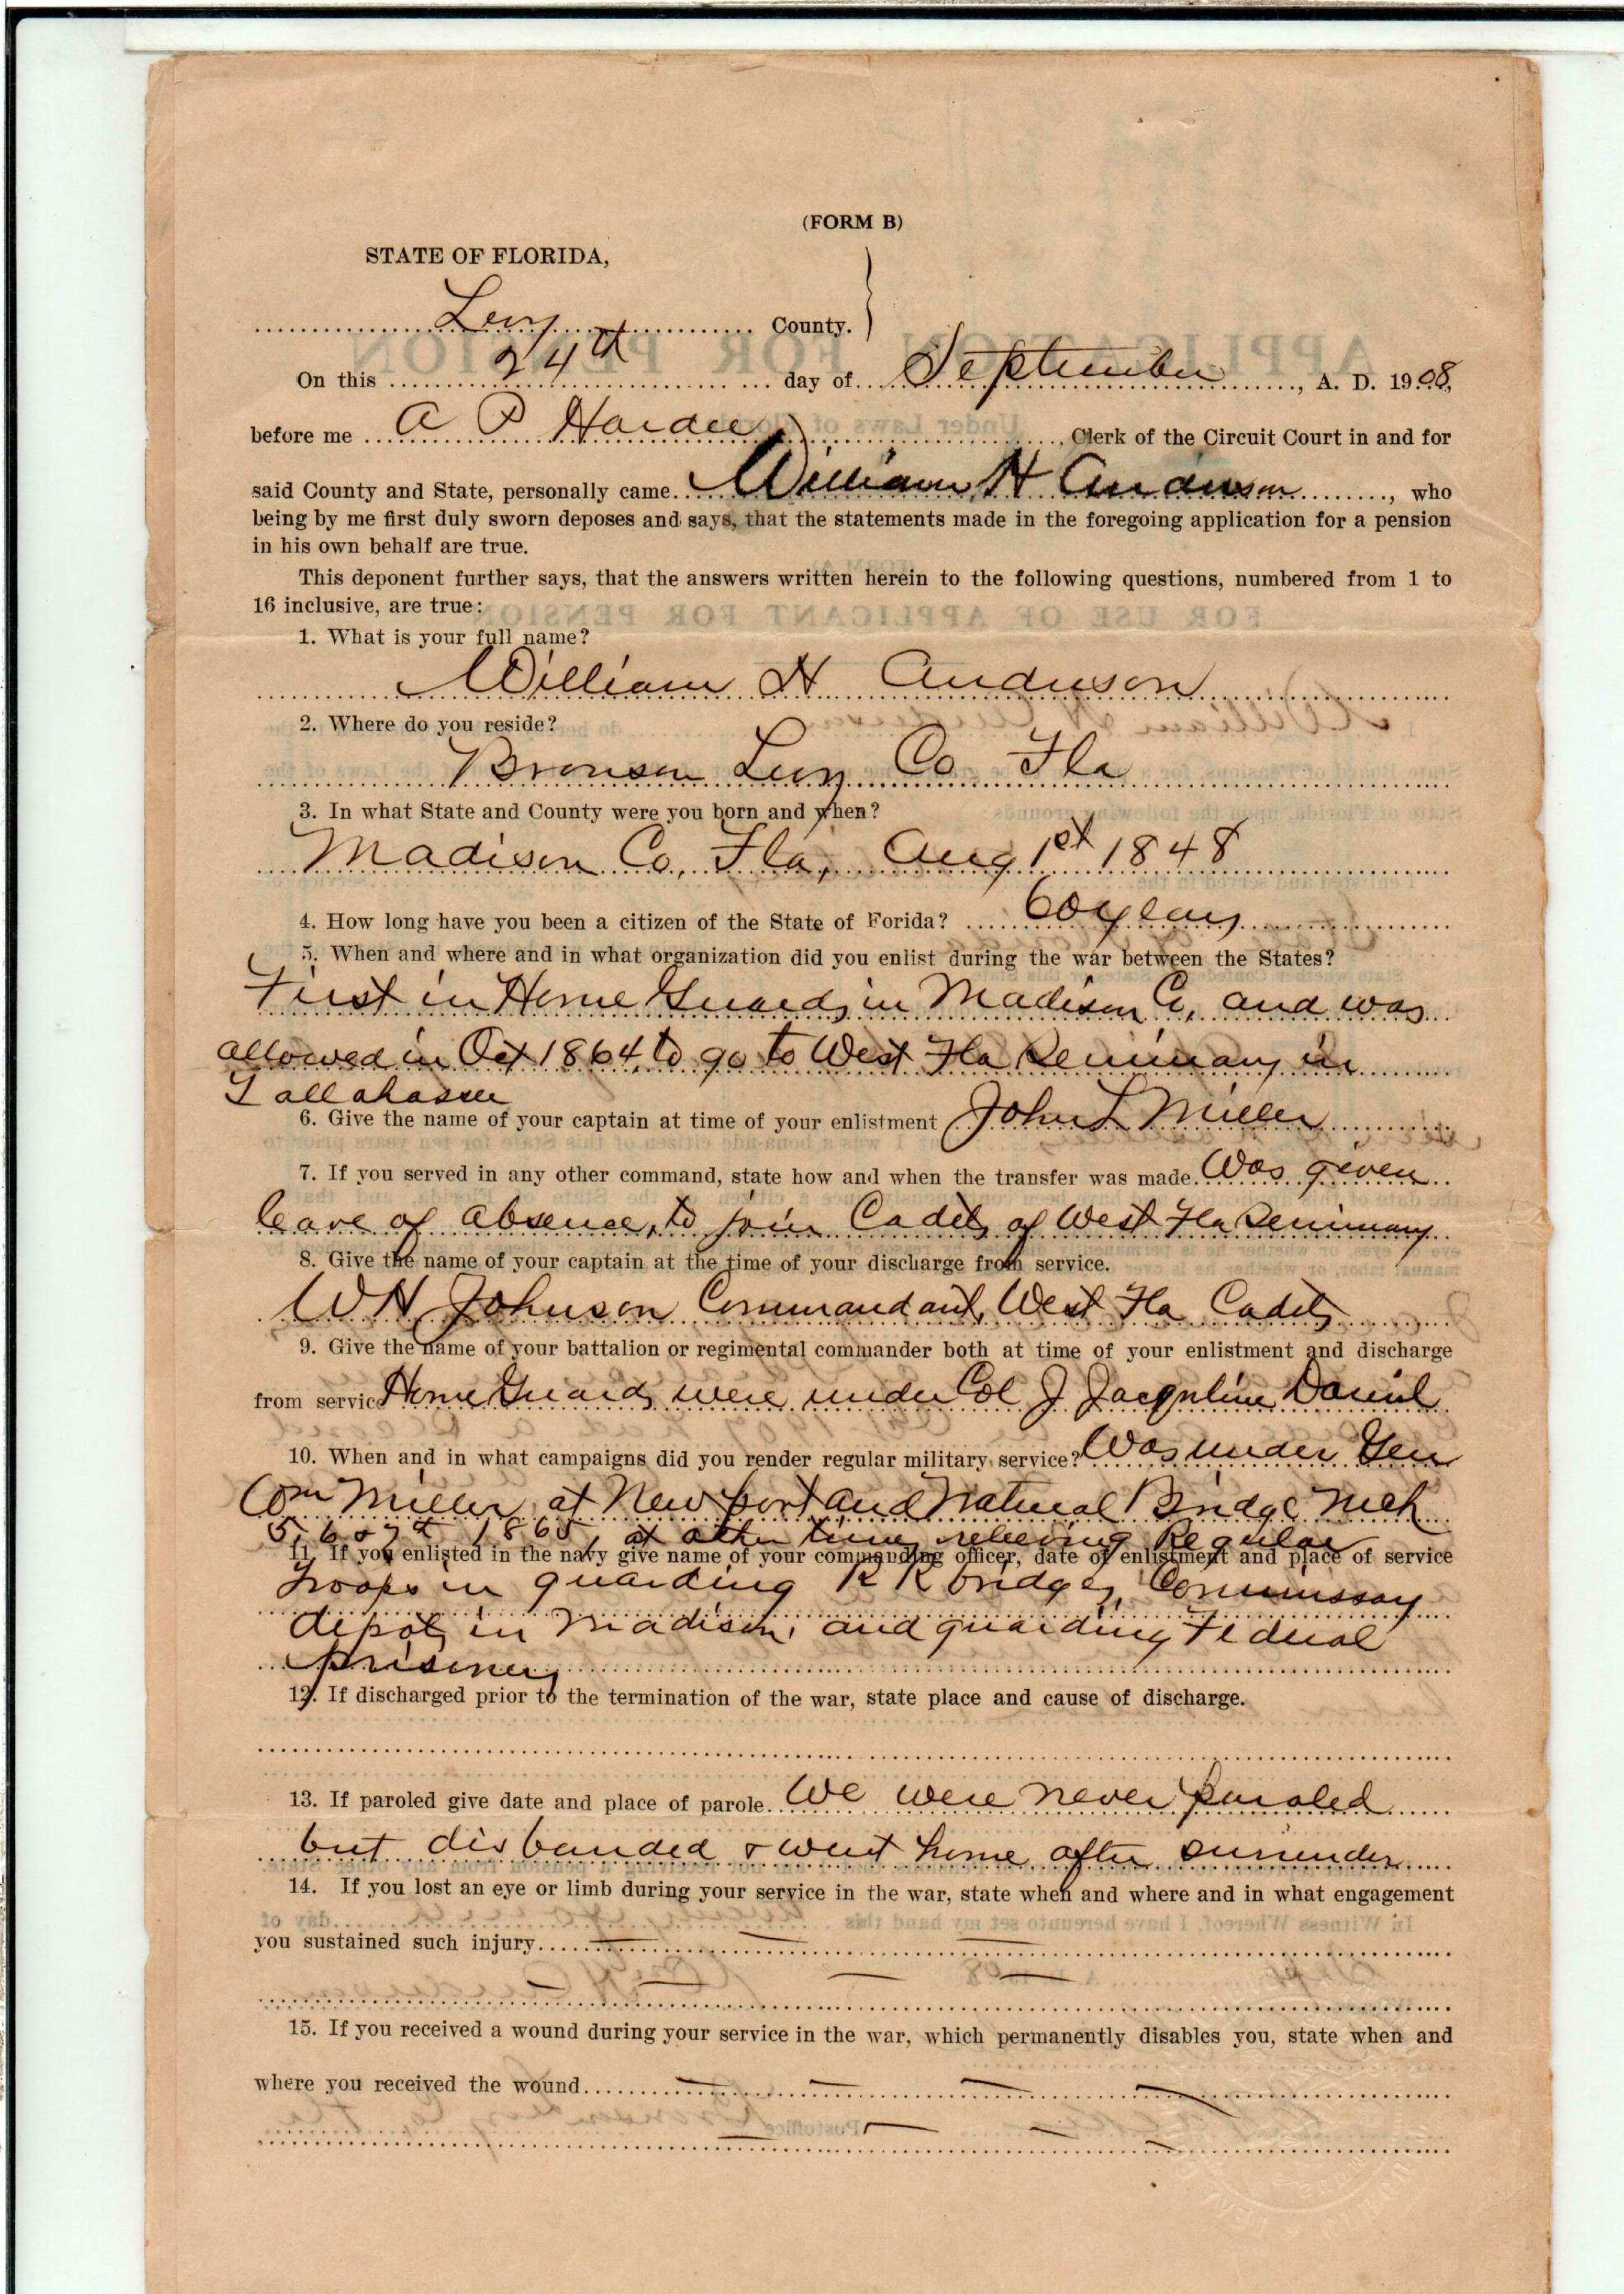 (FORM B)
STATE OF FLORIDA,
Levy County.
On this 24th day of September, A. D. 1908,
before me A P Hardee, Clerk of the Circuit Court in and for
said County and State, personally came William H Anderson, who
being by me first duly sworn deposes and says, that the statements made in the foregoing application for a pension
in his own behalf are true.
This deponent further says, that the answers written herein to the following questions, numbered from 1 to
16 inclusive, are true:
1. What is your full name?
William H Anderson
2. Where do you reside?
Bronson Levy Co Fla
3. In what State and County were you born and when?
Madison Co, Fla, Aug 1st 1848
4. How long have you been a citizen of the State of Forida? 60 years
5. When and where and in what organization did you enlist during the war between the States?
First in Home Guards in Madison Co, and was
allowed in Oct 1864, to go to West Fla Seminary in
Tallahassee
6. Give the name of your captain at time of your enlistment John L Miller
7. If you served in any other command, state how and when the transfer was made. Was given
leave of absence, to join Cadets of West Fla Seminary
8. Give the name of your captain at the time of your discharge from service.
W H Johnson Commandant, West Fla Cadets
9. Give the name of your battalion or regimental commander both at time of your enlistment and discharge
from service Home Guards were under Col J Jacquline Daniel
10. When and in what campaigns did you render regular military service? Was under Gen
Wm Miller at New port and Natural Bridge Mch
5, 6 & 7th 1865, at other times relieving Regular
11. If you enlisted in the navy give name of your commanding officer, date of enlistment and place of service
Troops in guarding R R bridges, Commissary
depots in Madison, and guarding Federal
prisoners
12. If discharged prior to the termination of the war, state place and cause of discharge.
13. If paroled give date and place of parole. We were never paroled
but disbanded & went home after surrender
14. If you lost an eye or limb during your service in the war, state when and where and in what engagement
you sustained such injury
15. If you received a wound during your service in the war, which permanently disables you, state when and
where you received the wound